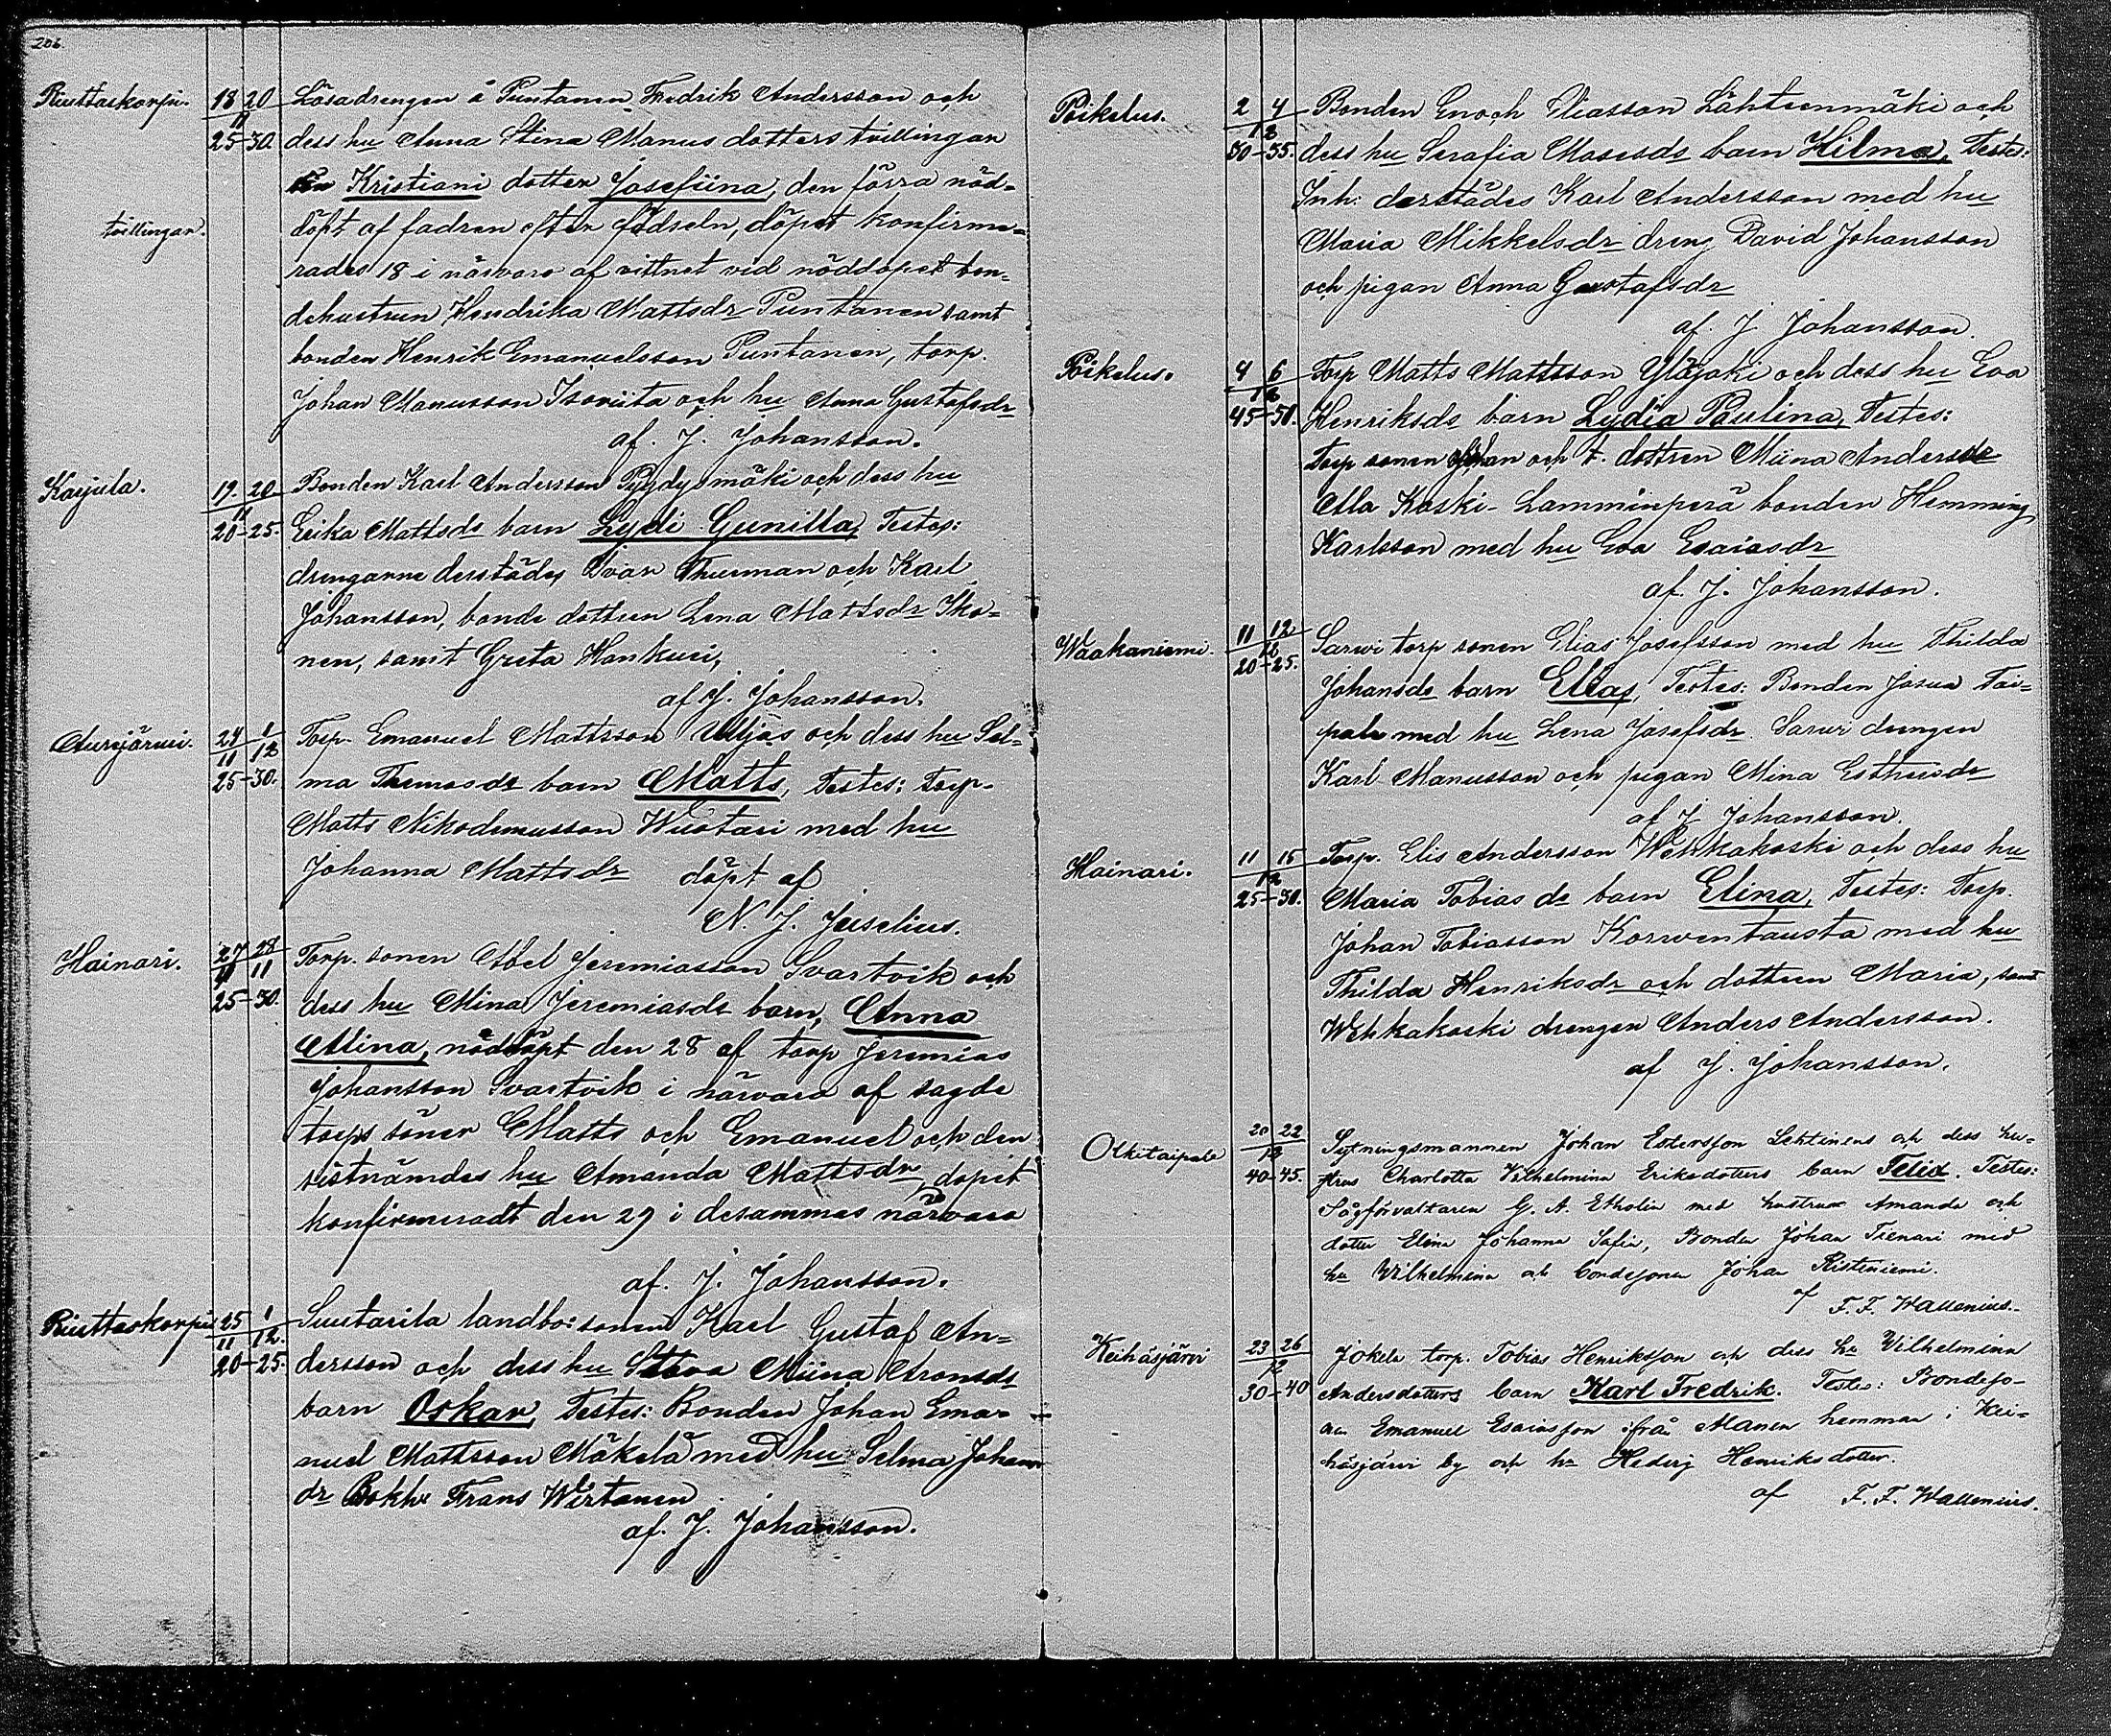 206
Riuttaskorpi. 18 20 Lösadrengen å Puntanen Fredrik Andersson och
11
25-30. dess hu Anna Stina Manus dotters tvillingar
Kristiani dotter Josefiina, den förra nöd-
tvillingar. döpt af fadren efter födseln, döpet konfirme-
rades 18 i närvaro af vittnet vid nöddopet bon-
dehustrun Hendrika Mattsdr Puntanen samt
bonden Henrik Emanuelsson Puntanen, torp.
Johan Manusson Isoriita och hu Anna Gustafsdr
af. J. Johansson.
Karjula. 19. 20 Bonden Karl Andersson Pyydysmäki och dess hu
11
20-25. Erika Mattsdr barn Lydi Gunilla, Testes:
drengarne derstädes Ivar Thurman och Karl
Johansson, bonde dottren Lena Mattsdr Iko-
nen, samt Greta Honkuri,
af J. Johansson.
Aurejärwi. 24 1 Torp. Emanuel Mattsson Uljas och dess hu Sel-
11 12
25-30. ma Thomasdr barn Matts, Testes: torp.
Matts Nikodemusson Wuotari med hu
Johanna Mattsdr döpt af
N. J. Juselius.
Hainari. 27 28 Torp. sonen Abel Jeremiasson Svartvik och
11 11
25-30. dess hu Mina Jeremiasdr barn, Anna
Mina, nöddöpt den 28 af torp Jeremias
Johansson Svartvik i närvaro af sagde
torps söner Matts och Emanuel och den
sistnämdes hu Amanda Mattsdr, dopet
konfirmeradt den 29 i desammas närvaro
af. J. Johansson.
Riuttaskorpi 25 1 Suutarila landbo: sonen Karl Gustaf An-
11 12.
20-25. dersson och dess hu Miina Aronsdr
barn Oskar, Testes: Bonden Johan Ema-
nuel Mattsson Mäkelä med hu Selma Johans
dr Bokh. Frans Wirtanen
af. J. Johansson.
Poikelus. 2 4 Bonden Enoch Eliasson Lähteenmäki och
12
30-35. dess hu Serafia Mosesdr barn Hilma, Testes:
Inh: derstädes Karl Andersson med hu
Maria Mikkelsdr dreng David Johansson
och pigan Anna Gustafsdr
af. J Johansson.
Poikelus. 4 6 Torp Matts Mattsson Yläjoki och dess hu Eva
12
45-50. Henriksdr barn Lydia Paulina, Testes:
Torp sonen Johan och t. dottren Miina Andersdr
Ala Koski- Lamminperä bonden Hemming
Karlsson med hu Eva Esaiasdr
af J. Johansson.
Waakaniemi. 11 12 Sarwi torp sonen Elias Josefsson med hu Thilda
12
20-25. Johansdr barn Elias, Testes: Bonden Josua Tai-
pale med hu Lena Josefsdr. Sarwi drengen
Karl Manusson och pigan Mina Esthersdr
af J Johansson.
Hainari. 11 15 Torp. Elis Andersson Wehkakoski och dess hu
12
25-30. Maria Tobias dr barn Elina, Testes: Torp.
Johan Tobiasson Korwentausta med hu
Thilda Henriksdr och dottren Maria, samt
Wehkakoski drengen Anders Andersson.
af J. Johansson.
Olkitaipale 20 22 Sytningsmannen Johan Estersson Lehtinens och dess hu-
12
40-45. strus Charlotta Vilhelmina Eriksdotters barn Felix. Testes:
Sågförvaltaren G. A. Etholin med hustrun Amanda och
dotter Elina Johanna Sofia, Bonden Johan Tienari med
hu Wilhelmina och bondesonen Johan Ristiniemi.
af F. F. Wallenius.
Keihäsjärvi 23 26 Jokela torp. Tobias Henriksson och dess hu Vilhelmina
12
30-40 Andersdotters barn Karl Fredrik. Testes: Bondeso-
nen Emanuel Esaiasson ifrån Manen hemman i Kei-
häsjärvi by och hu Hedvig Henriksdotter.
af F. F. Wallenius.